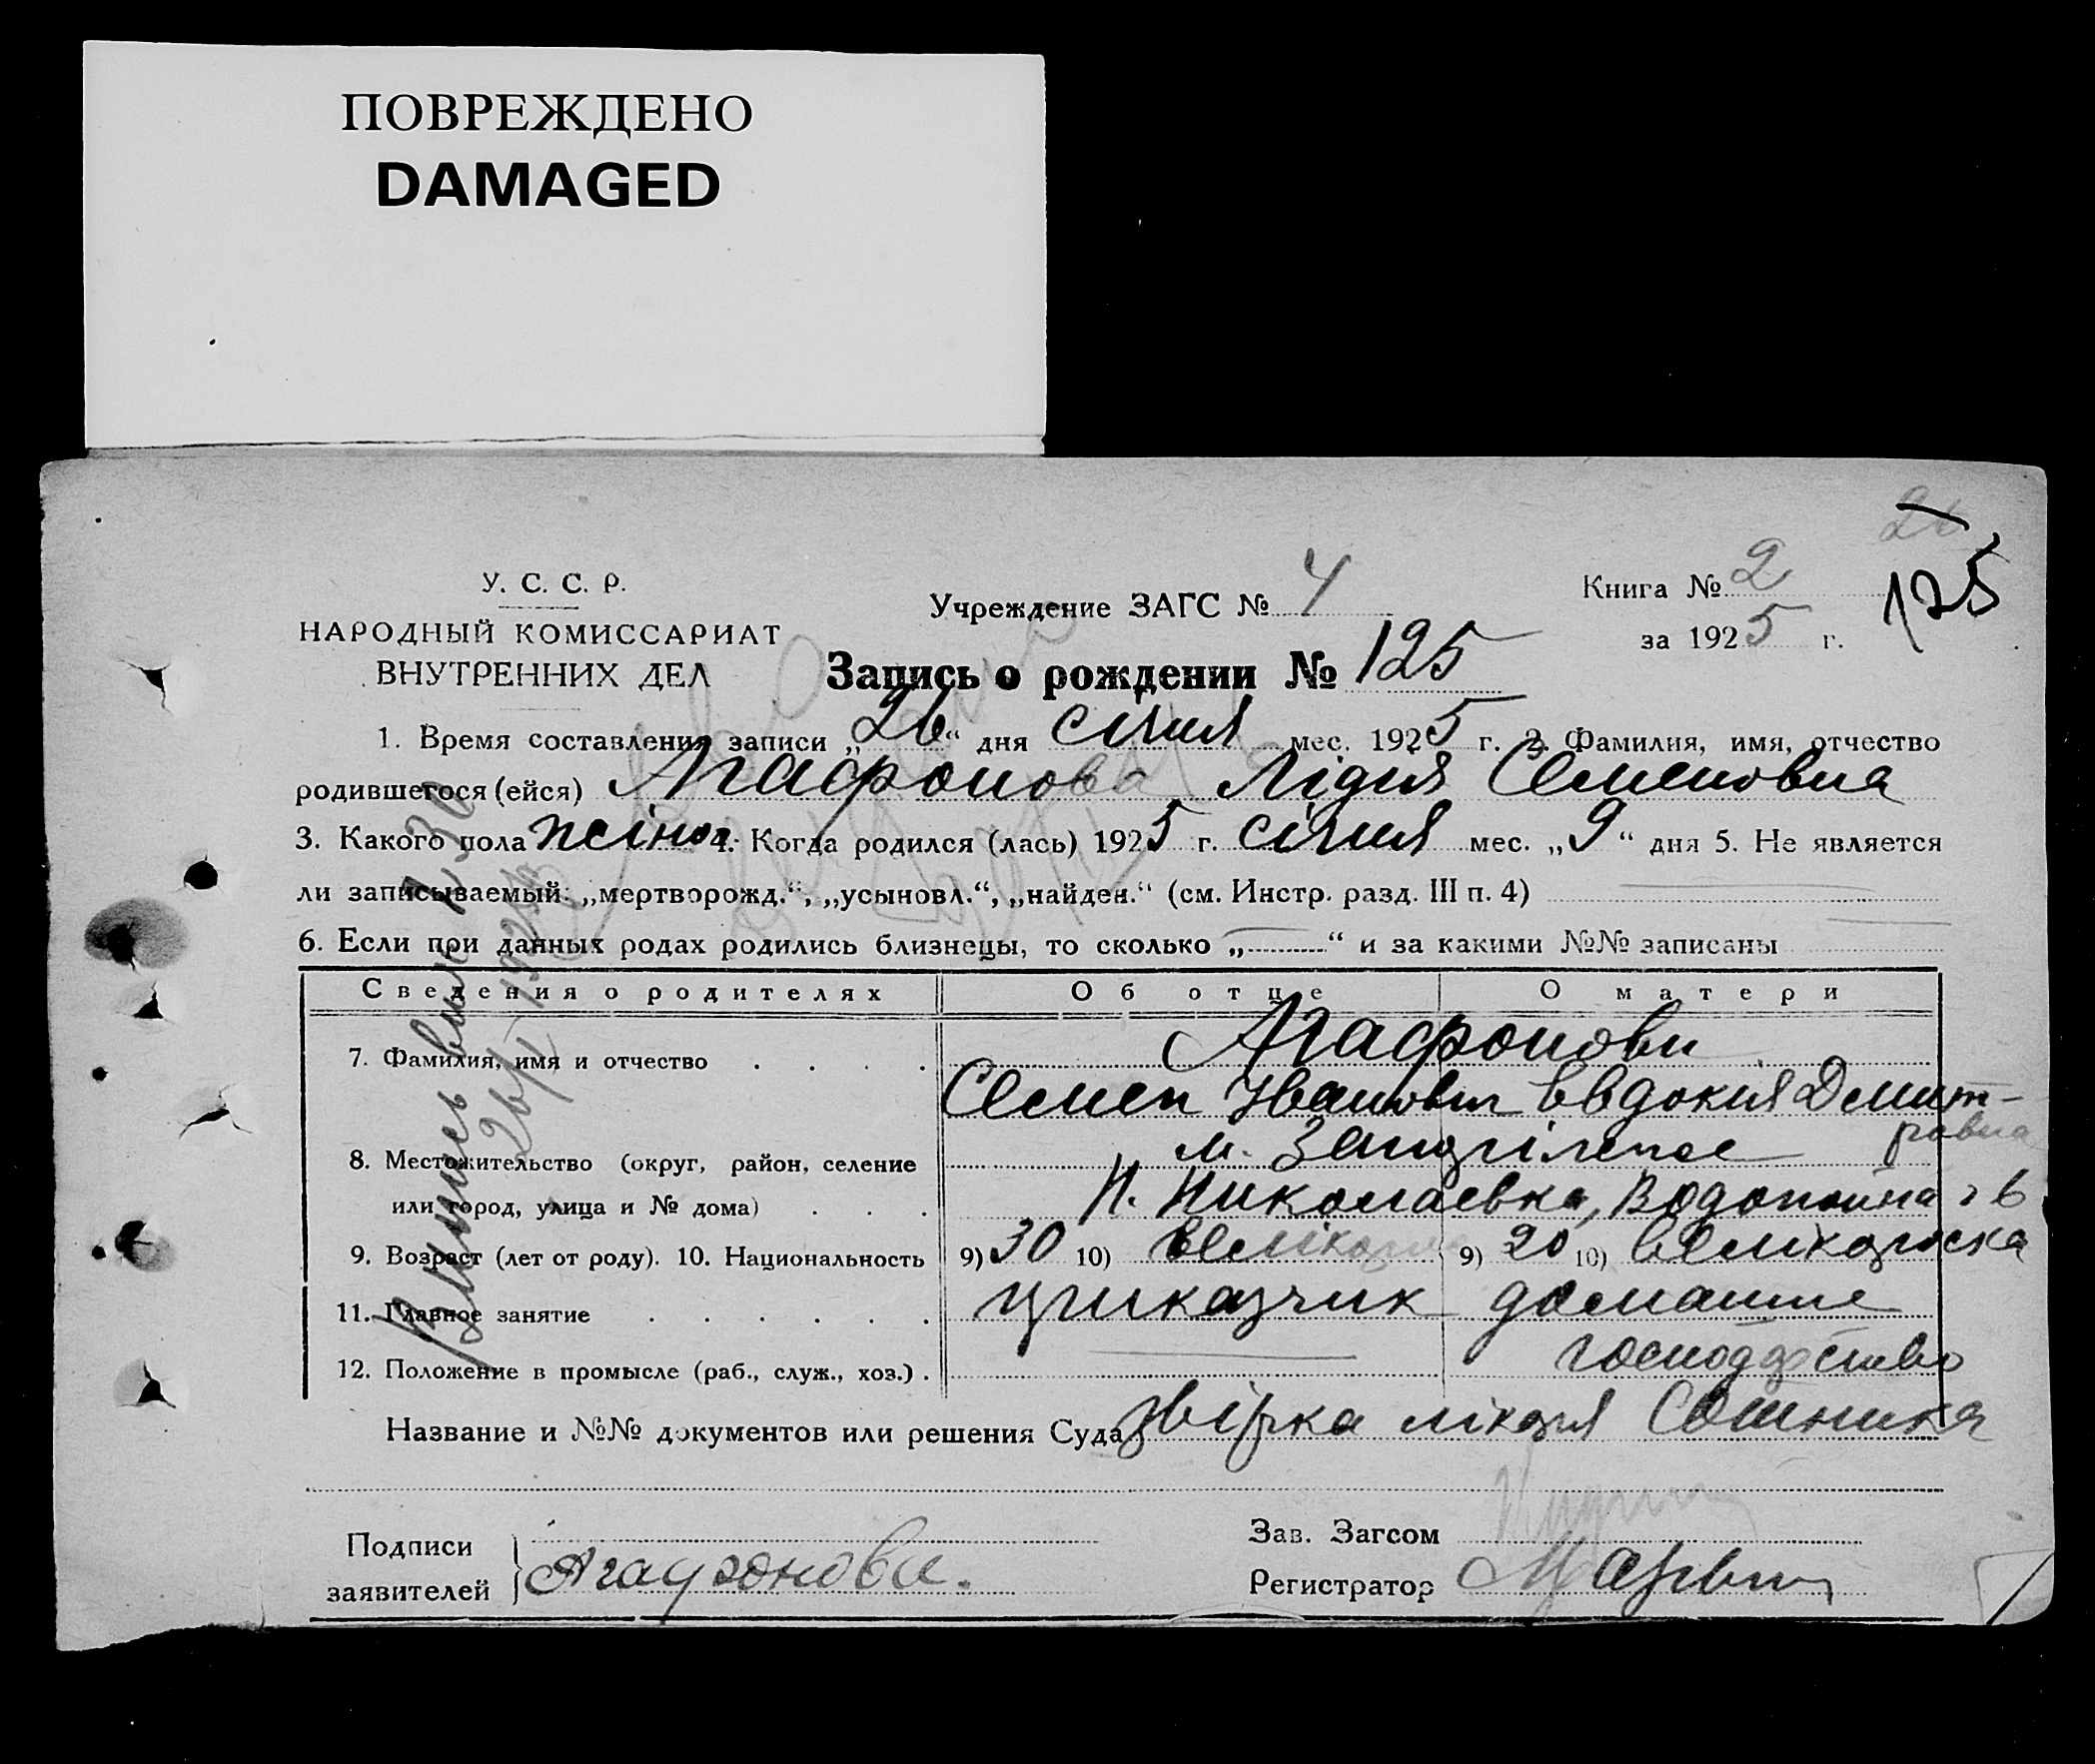 ПОВРЕЖДЕНО
DAMAGED
У. С. С. Р.
НАРОДНЫЙ КОМИССАРИАТ
ВНУТРЕННИХ ДЕЛ
Учреждение ЗАГС № 4
Книга № 2
за 1925 г.
125
Запись о рождении № 125
1. Время составления записи „26“ дня січня мес. 1925 г. 2. Фамилия, имя, отчество
родившегося (ейся) Агафонова Лідия Семеновна
3. Какого пола жіноч. 4. Когда родился (лась) 1925 г. січня мес. „9“ дня 5. Не является
ли записываемый: „мертворожд.“, „усыновл.“, „найден.“ (см. Инстр. разд. III п. 4)
6. Если при данных родах родились близнецы, то сколько „—“ и за какими №№ записаны
Сведения о родителях Об отце О матери
7. Фамилия, имя и отчество Агафонови
Семен Іванович Евдокия Дмит-
ровна
8. Местожительство (округ, район, селение
или город, улица и № дома) Н. Николаевка, 6
9. Возраст (лет от роду). 10. Национальность 9) 30 10) 9) 20 10) великороска
11. Главное занятие приказчик домашнє
господарство
12. Положение в промысле (раб., служ., хоз.)
Название и №№ документов или решения Суда лікаря
Подписи
заявителей Агафонова.
Зав. Загсом
Регистратор
Випись